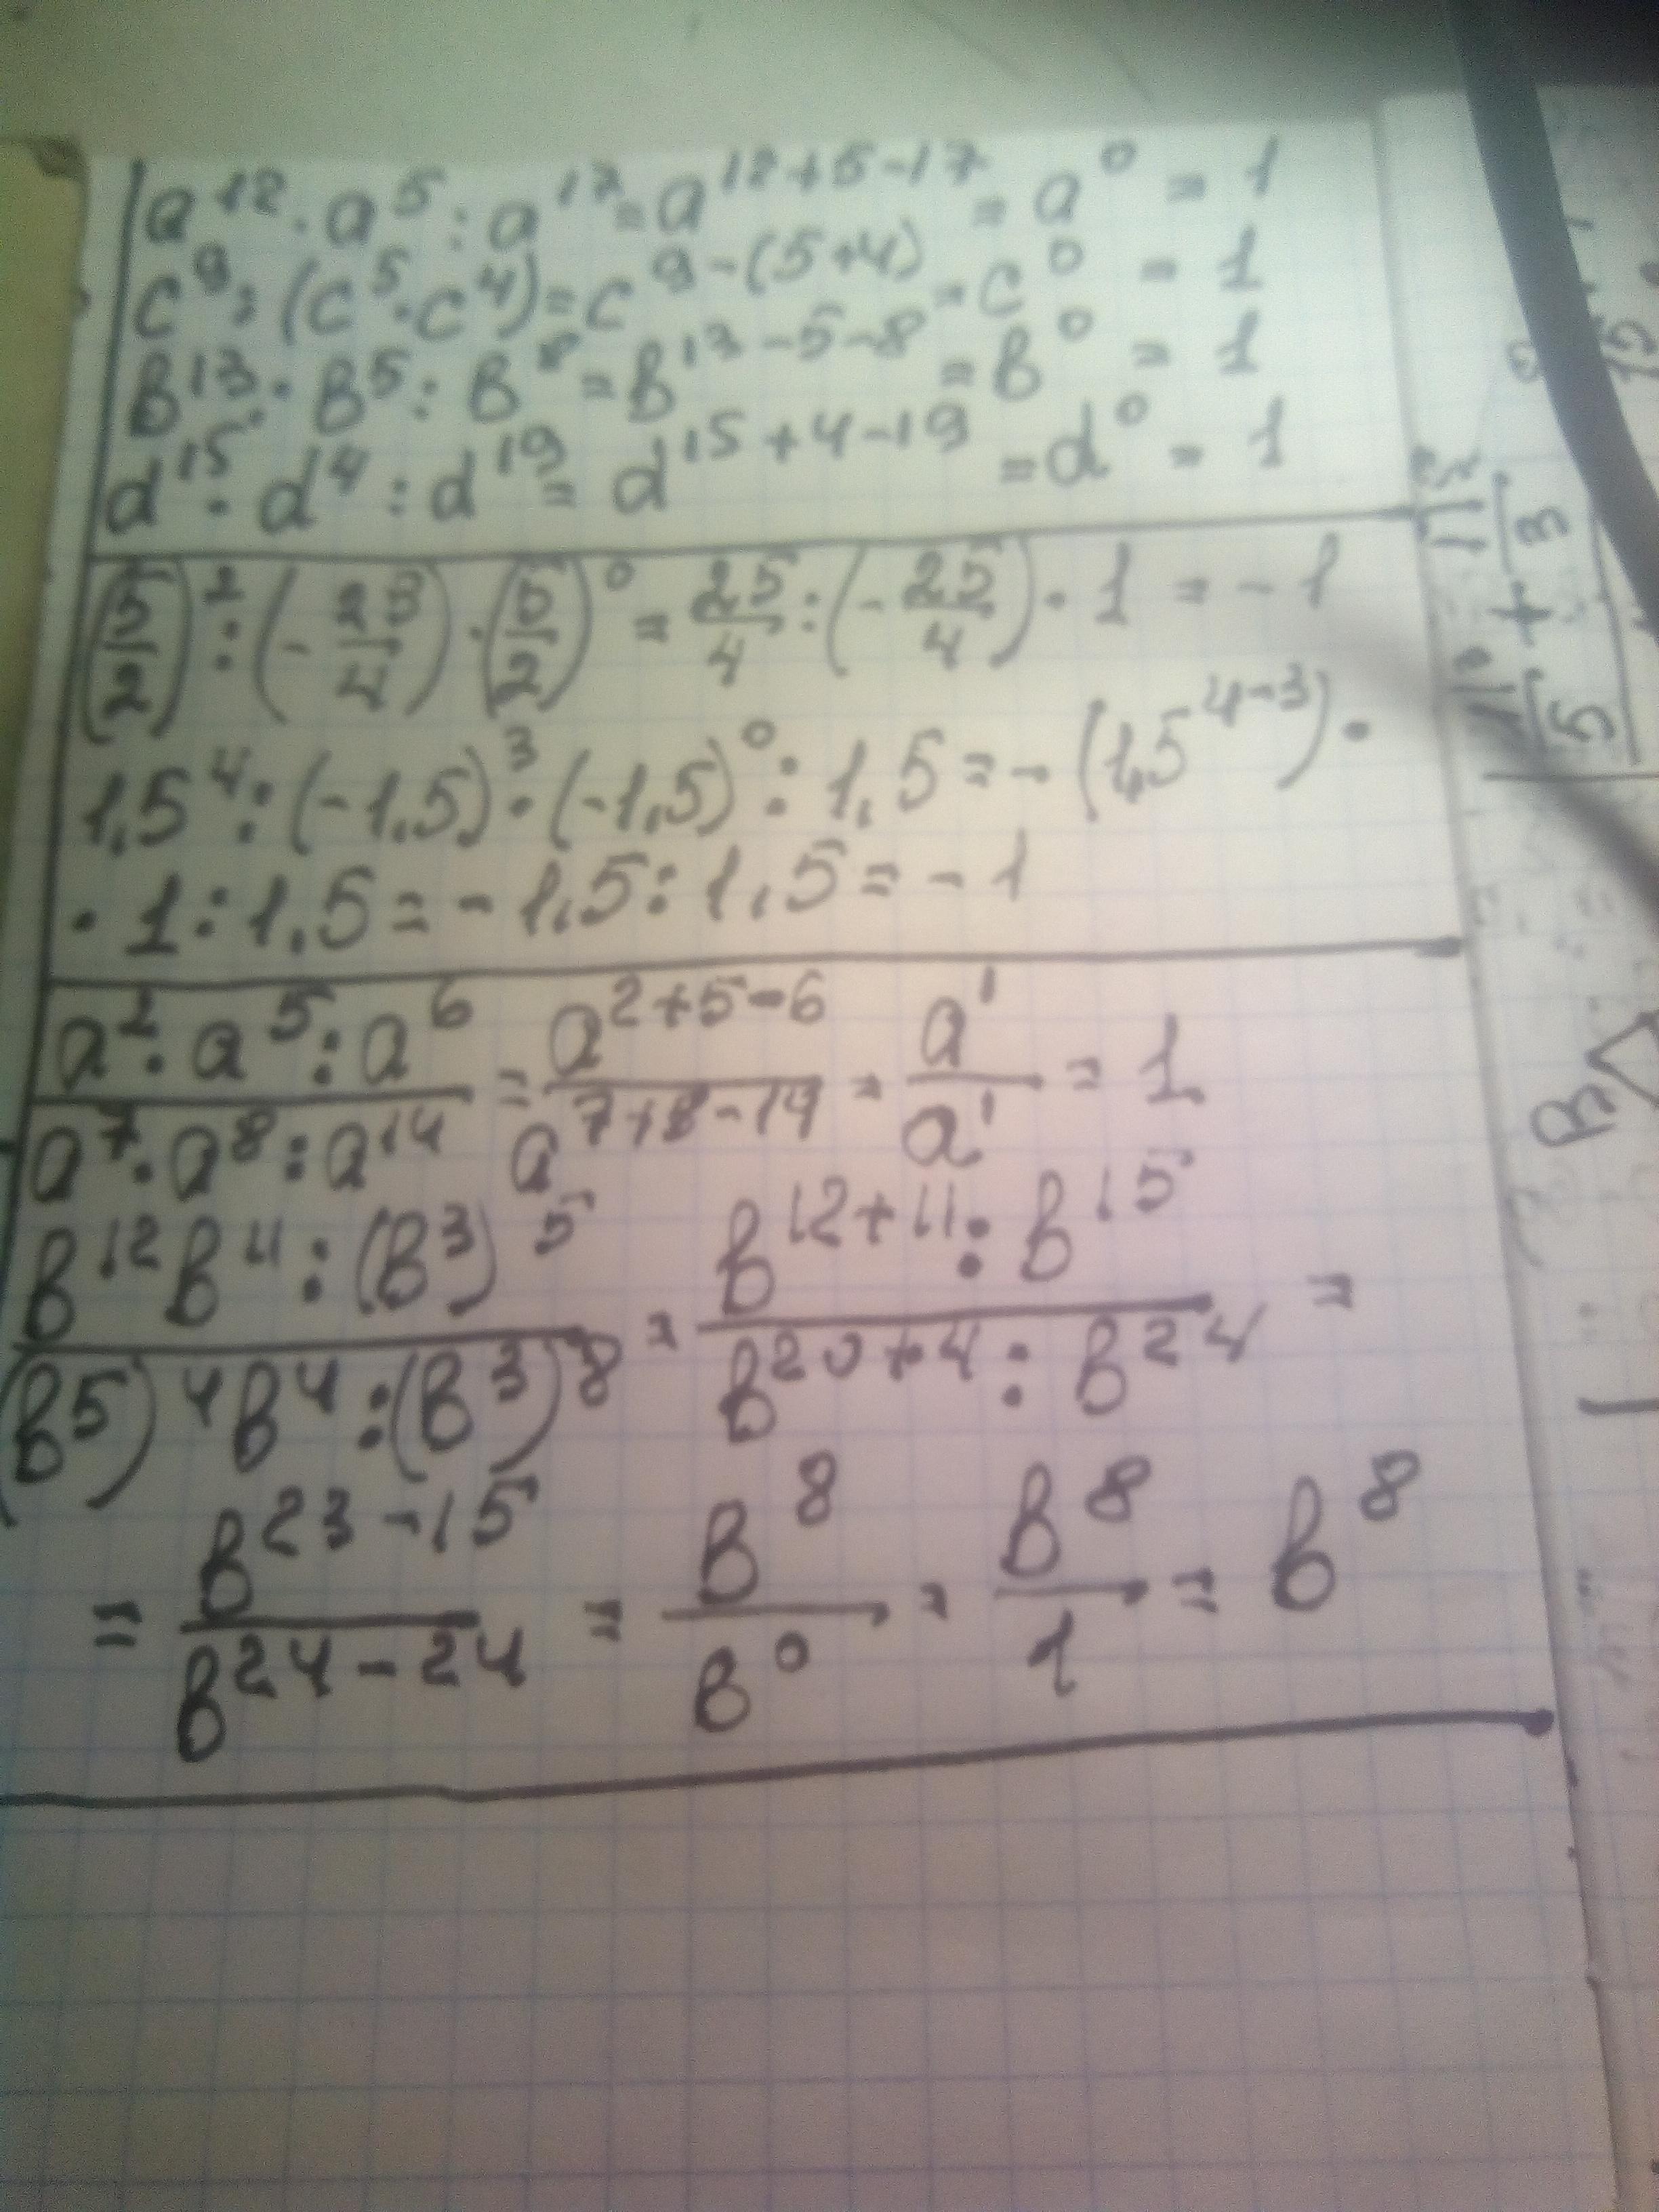 a¹² · a⁵ : a¹⁷ = a¹²⁺⁵⁻¹⁷ = a⁰ = 1
c⁹ : (c⁵ · c⁴) = c⁹⁻⁽⁵⁺⁴⁾ = c⁰ = 1
в¹³ : в⁵ : в⁸ = в¹³⁻⁵⁻⁸ = в⁰ = 1
d¹⁵ · d⁴ : d¹⁹ = d¹⁵⁺⁴⁻¹⁹ = d⁰ = 1
(5/2)² : (- 25/4) · (5/2)⁰ = 25/4 : (- 25/4) · 1 = - 1
1,5⁴ : (-1,5)³ · (-1,5)⁰ : 1,5 = - (1,5⁴⁻³) ·
· 1 : 1,5 = - 1,5 : 1,5 = - 1
(a² · a⁵ : a⁶)/(a⁷ · a⁸ : a¹⁴) = a²⁺⁵⁻⁶/a⁷⁺⁸⁻¹⁴ = a¹/a¹ = 1
(в¹²в¹¹ : (в³)⁵)/((в⁵)⁴в⁴ : (в³)⁸) = (в¹²⁺¹¹ : в¹⁵)/(в²⁰⁺⁴ : в²⁴) =
= в²³⁻¹⁵/в²⁴⁻²⁴ = в⁸/в⁰ = в⁸/1 = в⁸